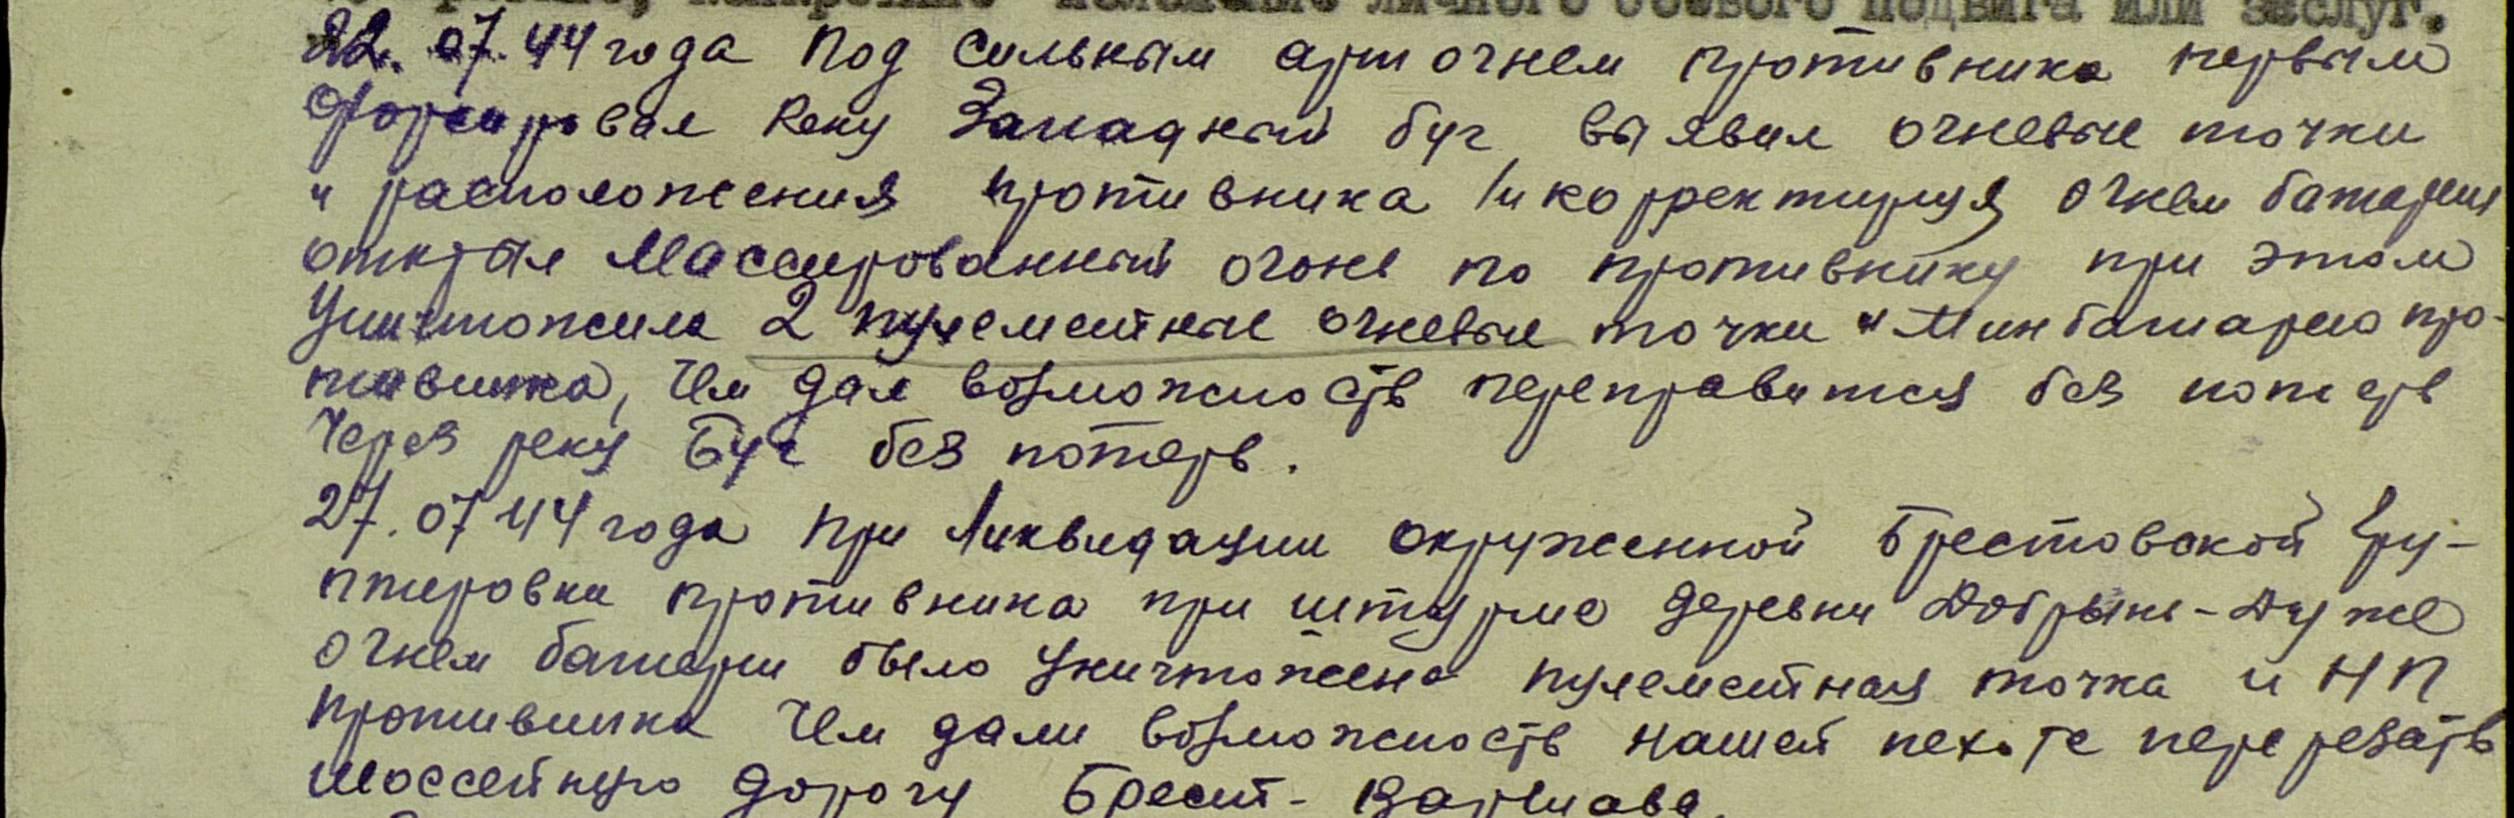 конкретное изложение личного боевого подвига или заслуг.
22.07.44 года Под сильным арт огнем противника первым
Форсировал Реку Западный буг, выявил огневые точки
и расположения противника и корректируя огнем батареи
открыл Массированный огонь по противнику при этом
Уничтожила 2 пулеметные огневые точки и Минбатарею про-
тивника, Чем дал возможность переправится без потерь
Через реку Буг без потерь.
27.07 44 года при Ликвидации окруженной Брестовской Гру-
ппировки противника при штурме деревни Добрынь-Дуже
огнем батареи было уничтожено пулеметная точка и НП
Противника Чем дали возможность нашей пехоте перерезать
шоссейную дорогу Брест-Варшава.